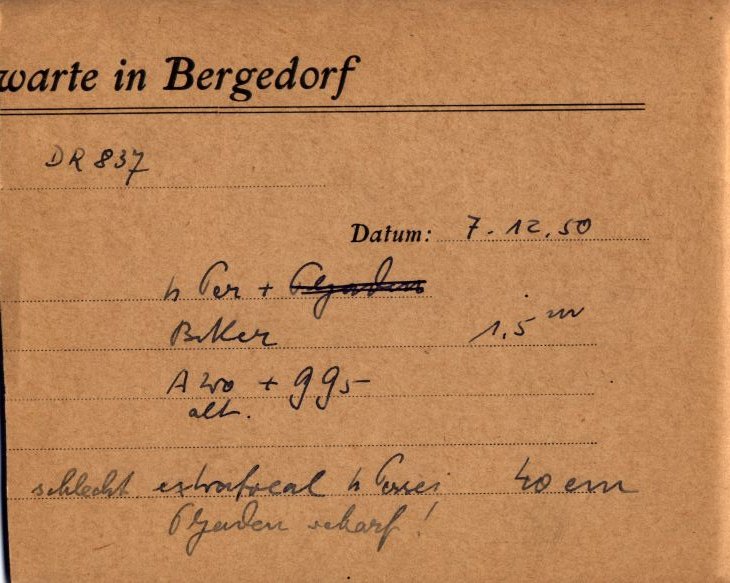 warte in Bergedorf
DR 837
Datum: 7.12.50
h Per + Plejaden
Boker 1,5 m
A 200 + 995
alt.
schlecht extrafocal h Persei 40 cm
Plejaden scharf!